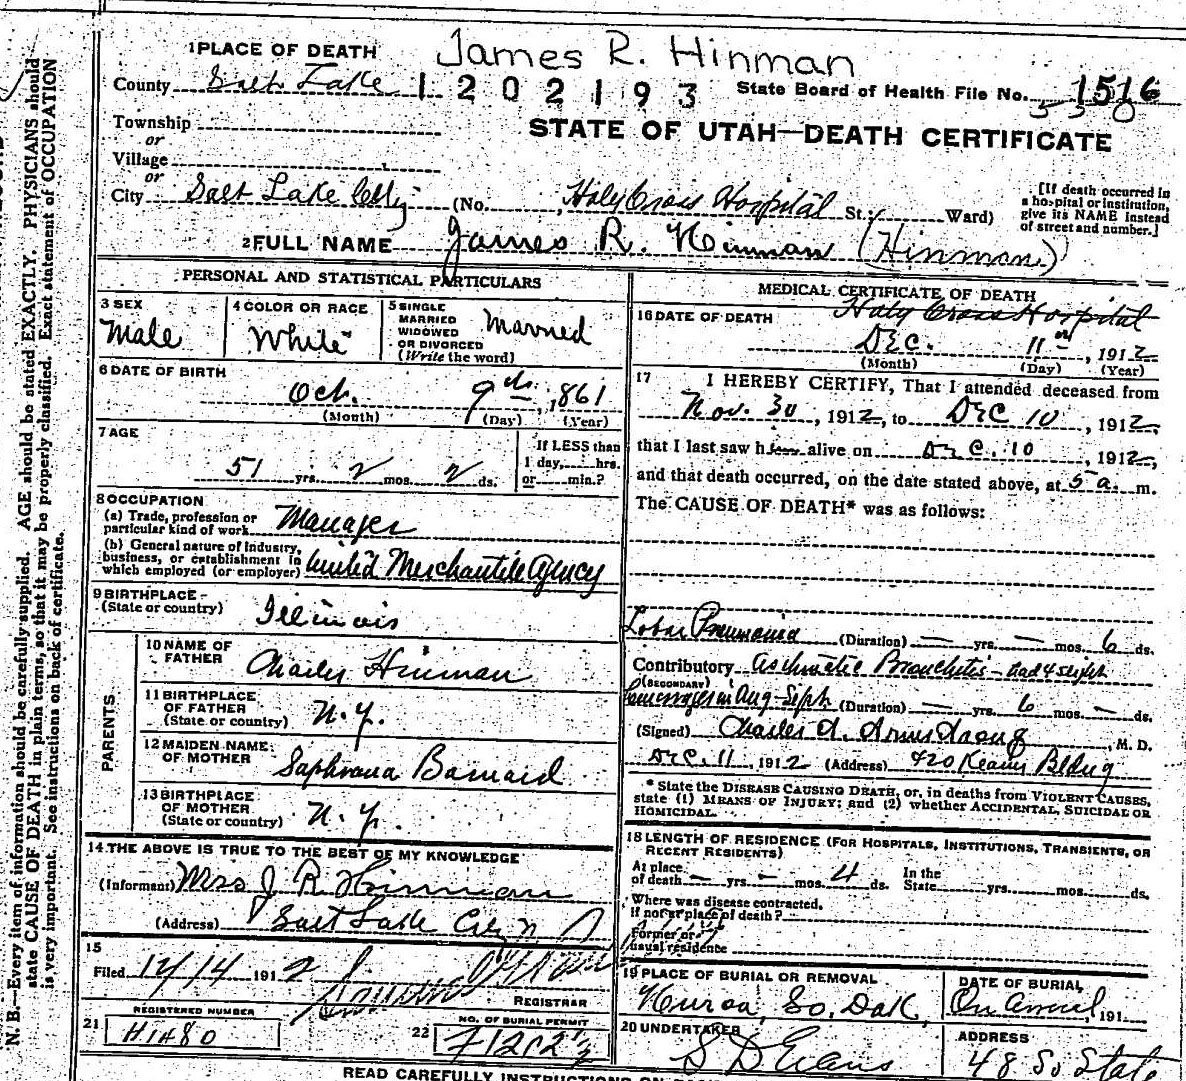 James R. Hinman
1 PLACE OF DEATH
County Salt Lake 1 2 0 2 1 9 3 State Board of Health File No. 1516
530
Township
or
Village
or
City Salt Lake City (No. Holy Cross Hospital St.; Ward)
[If death occurred in a hospital or institution, give its NAME instead of street and number.]
STATE OF UTAH—DEATH CERTIFICATE
2 FULL NAME James R. Hinman (Hinman.)
PERSONAL AND STATISTICAL PARTICULARS
3 SEX
Male
4 COLOR OR RACE
White
5 SINGLE
MARRIED
WIDOWED
OR DIVORCED
(Write the word)
Married
6 DATE OF BIRTH
Oct. 9th, 1861
(Month) (Day) (Year)
7 AGE
51 yrs. 2 mos. 2 ds.
If LESS than
1 day, hrs.
or min.?
8 OCCUPATION
(a) Trade, profession or
particular kind of work Manager
(b) General nature of industry,
business, or establishment in
which employed (or employer) United Merchantile Agency
9 BIRTHPLACE
(State or country) Illinois
PARENTS
10 NAME OF
FATHER Charles Hinman
11 BIRTHPLACE
OF FATHER
(State or country) N. Y.
12 MAIDEN NAME
OF MOTHER Saphrona Barnard
13 BIRTHPLACE
OF MOTHER
(State or country) N. Y.
14 THE ABOVE IS TRUE TO THE BEST OF MY KNOWLEDGE
(Informant) Mrs J R Hinman
(Address) Salt Lake City
15
Filed 12/14 1912
REGISTRAR
REGISTERED NUMBER
21 H1480
NO. OF BURIAL PERMIT
22
MEDICAL CERTIFICATE OF DEATH
Holy Cross Hospital
16 DATE OF DEATH
Dec. 11th, 1912
(Month) (Day) (Year)
17 I HEREBY CERTIFY, That I attended deceased from
Nov. 30, 1912, to Dec 10, 1912,
that I last saw him alive on Dec. 10, 1912,
and that death occurred, on the date stated above, at 5 a. m.
The CAUSE OF DEATH* was as follows:
Lobar Pneumonia (Duration) — yrs. — mos. 6 ds.
Contributory Asthmatic Bronchitis – had 4 slight
(SECONDARY)
in Aug-Sept (Duration) — yrs. 6 mos. — ds.
(Signed) Charles A. Armstrong, M. D.
Dec. 11, 1912 (Address) 420 Kearns Bldg
* State the DISEASE CAUSING DEATH, or, in deaths from VIOLENT CAUSES,
state (1) MEANS OF INJURY; and (2) whether ACCIDENTAL, SUICIDAL OR
HOMICIDAL.
18 LENGTH OF RESIDENCE (FOR HOSPITALS, INSTITUTIONS, TRANSIENTS, OR
RECENT RESIDENTS)
At place
of death — yrs. — mos. 4 ds. In the
State yrs. mos. ds.
Where was disease contracted,
if not at place of death?
Former or
usual residence
19 PLACE OF BURIAL OR REMOVAL
Huron, So. Dak.
DATE OF BURIAL
On Arrival, 191
20 UNDERTAKER
S D Evans
ADDRESS
48 So State
READ CAREFULLY INSTRUCTIONS ON
N. B.—Every item of information should be carefully supplied. AGE should be stated EXACTLY. PHYSICIANS should
state CAUSE OF DEATH in plain terms, so that it may be properly classified. Exact statement of OCCUPATION
is very important. See instructions on back of certificate.